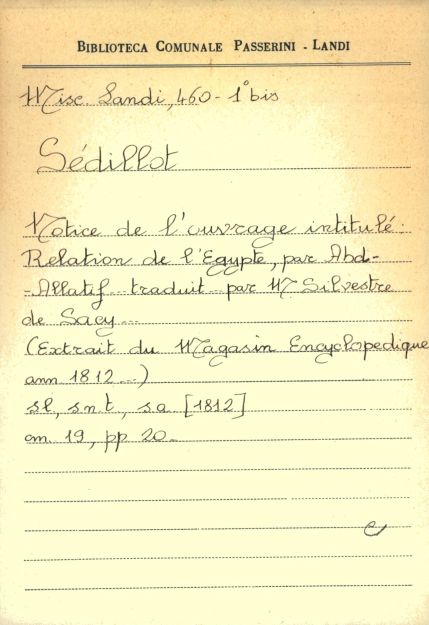 BIBLIOTECA COMUNALE PASSERINI - LANDI
Misc. Landi, 460 - 1° bis
Sédillot
Notice de l'ouvrage intitulé:
Relation de l'Egypte, par Abd-
-Allatif traduit par M Silvestre
de Sacy...
(Extrait du Magasin Encyclopedique
ann 1812...)
sl, s.n.t, s.a [1812]
cm. 19, pp 20.
e